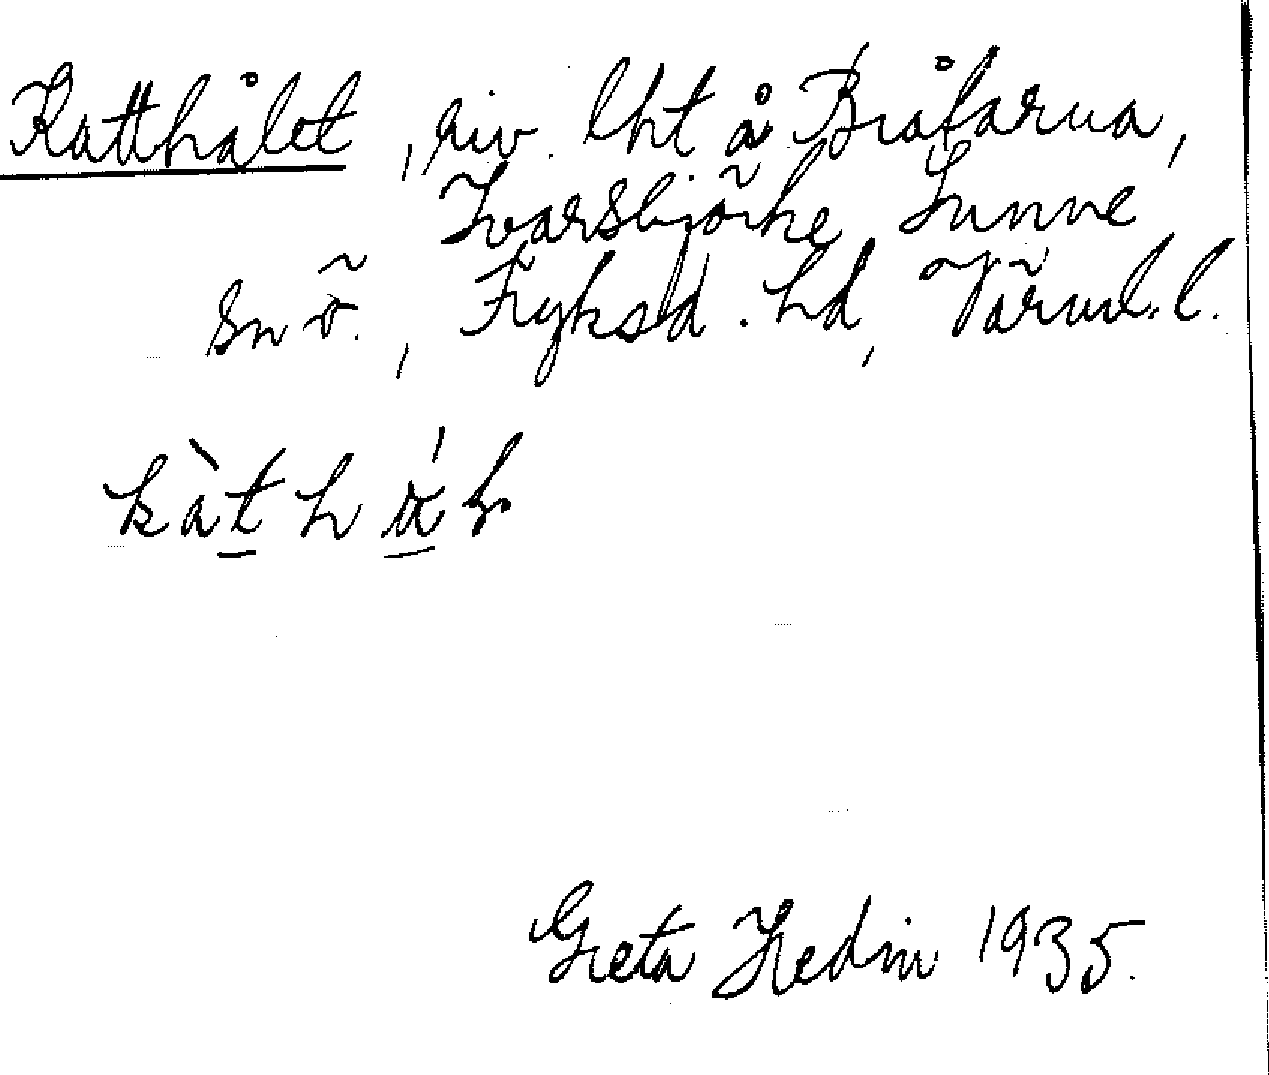 Katthålet, riv. lht å Bråtarna,
Ivarsbjörke, Sunne
sn ö., Fyksd. hd, Värml. l.
kàt h
Greta Hedin 1935.